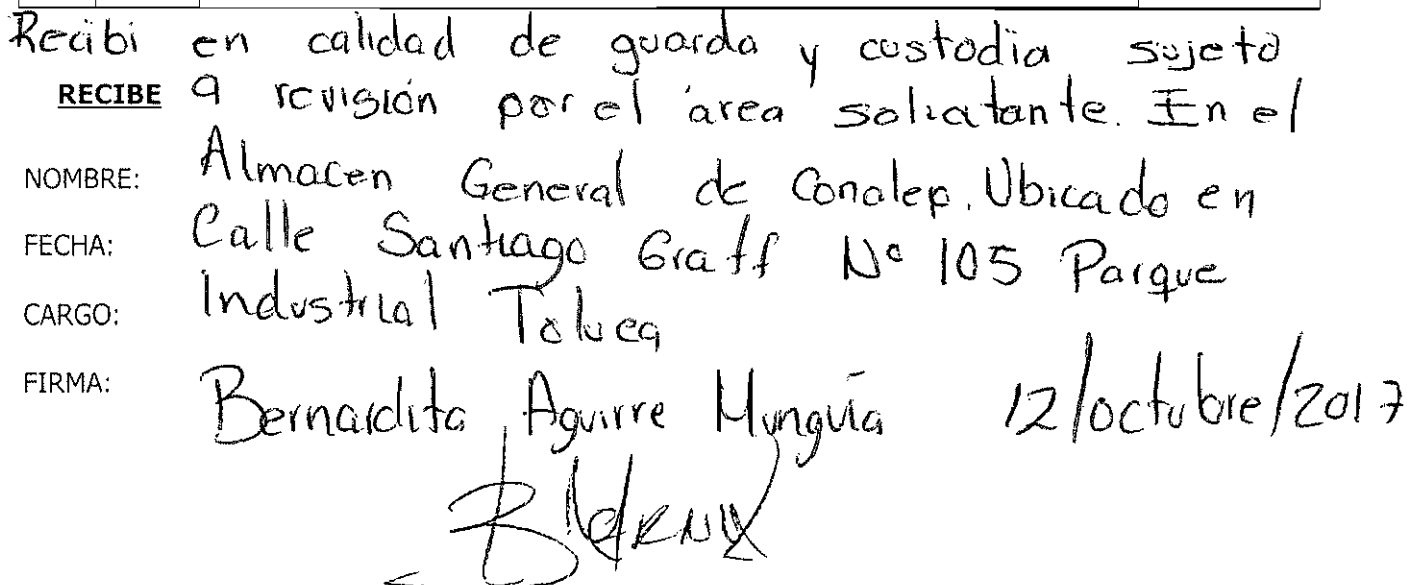 Recibi en calidad de guarda y custodia sujeto
RECIBE a revisión por el área solicitante. En el
NOMBRE: Almacen General de Conalep. Ubicado en
FECHA: Calle Santiago Graff Nº 105 Parque
CARGO: Industrial Toluca
FIRMA: Bernardita Aguirre Munguía 12/octubre/2017